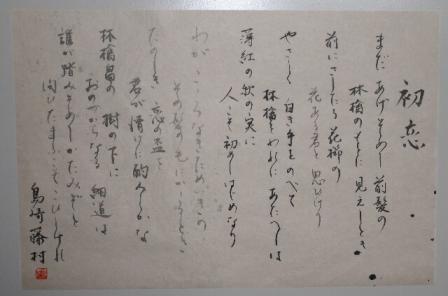 初恋
まだあげ初めし前髪の
林檎のもとに見えしとき
前にさしたる花櫛の
花ある君と思ひけり
やさしく白き手をのべて
林檎をわれにあたへしは
薄紅の秋の実に
人こひ初めしはじめなり
わがこゝろなきためいきの
その髪の毛にかゝるとき
たのしき恋の盃を
君が情けに酌みしかな
林檎畠の樹の下に
おのづからなる細道は
誰が踏みそめしかたみぞと
問ひたまふこそこひしけれ
島崎藤村